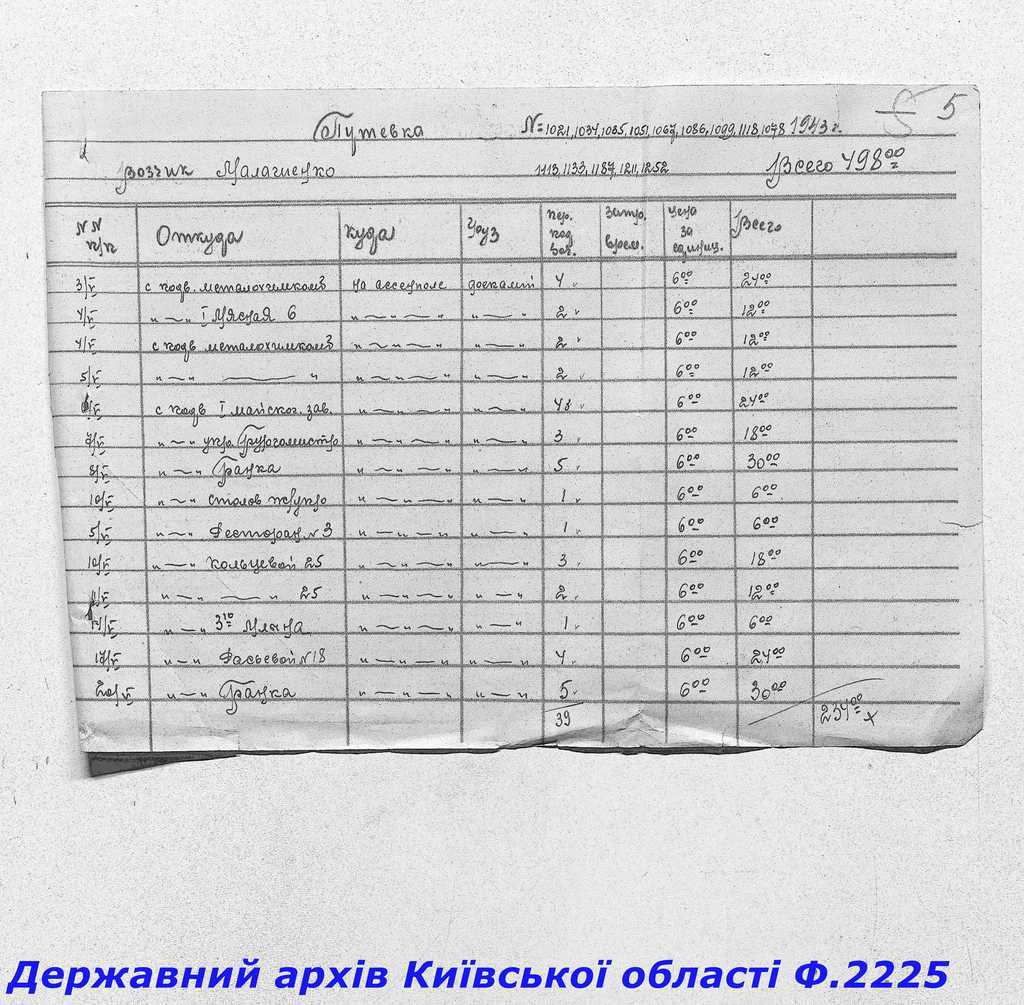 5
Путевка №=1021, 1034, 1035, 1051, 1067, 1086, 1099, 1118, 1078 1943 г.
возчик Малагиенко 1113, 1133, 1187, 1211, 1252 Всего 498⁰⁰
N N п/п Откуда куда Груз пер. под вог. затр. врем. цена за единиц. Всего
3/V с подв. металохимкомб на ассенполе доскамт 4 6⁰⁰ 24⁰⁰
4/V " — " I Мясная 6 " — " — " " — " 2 6⁰⁰ 12⁰⁰
4/V с подв металохимкомб " — " — " " — " 2 6⁰⁰ 12⁰⁰
5/V " — " — " " — " — " " — " 2 6⁰⁰ 12⁰⁰
/V с подв I майског. зав. " — " — " " — " 4 6⁰⁰ 24⁰⁰
7/V " — " укр. Бургомистр " — " — " " — " 3 6⁰⁰ 18⁰⁰
8/V " — " " — " — " " — " 5 6⁰⁰ 30⁰⁰
10/V " — " столов " — " — " " — " 1 6⁰⁰ 6⁰⁰
5/V " — " Ресторан N 3 " — " — " " — " 1 6⁰⁰ 6⁰⁰
10/V " — " Кольцевой 25 " — " — " " — " 3 6⁰⁰ 18⁰⁰
/V " — " — " 25 " — " — " " — " 2 6⁰⁰ 12⁰⁰
/V " — " 3 " — " — " " — " 1 6⁰⁰ 6⁰⁰
17/V " — " N 18 " — " — " " — " 4 6⁰⁰ 24⁰⁰
20/V " — " " — " — " " — " 5 6⁰⁰ 30⁰⁰
39 234⁰⁰ x
Державний архів Київської області Ф.2225